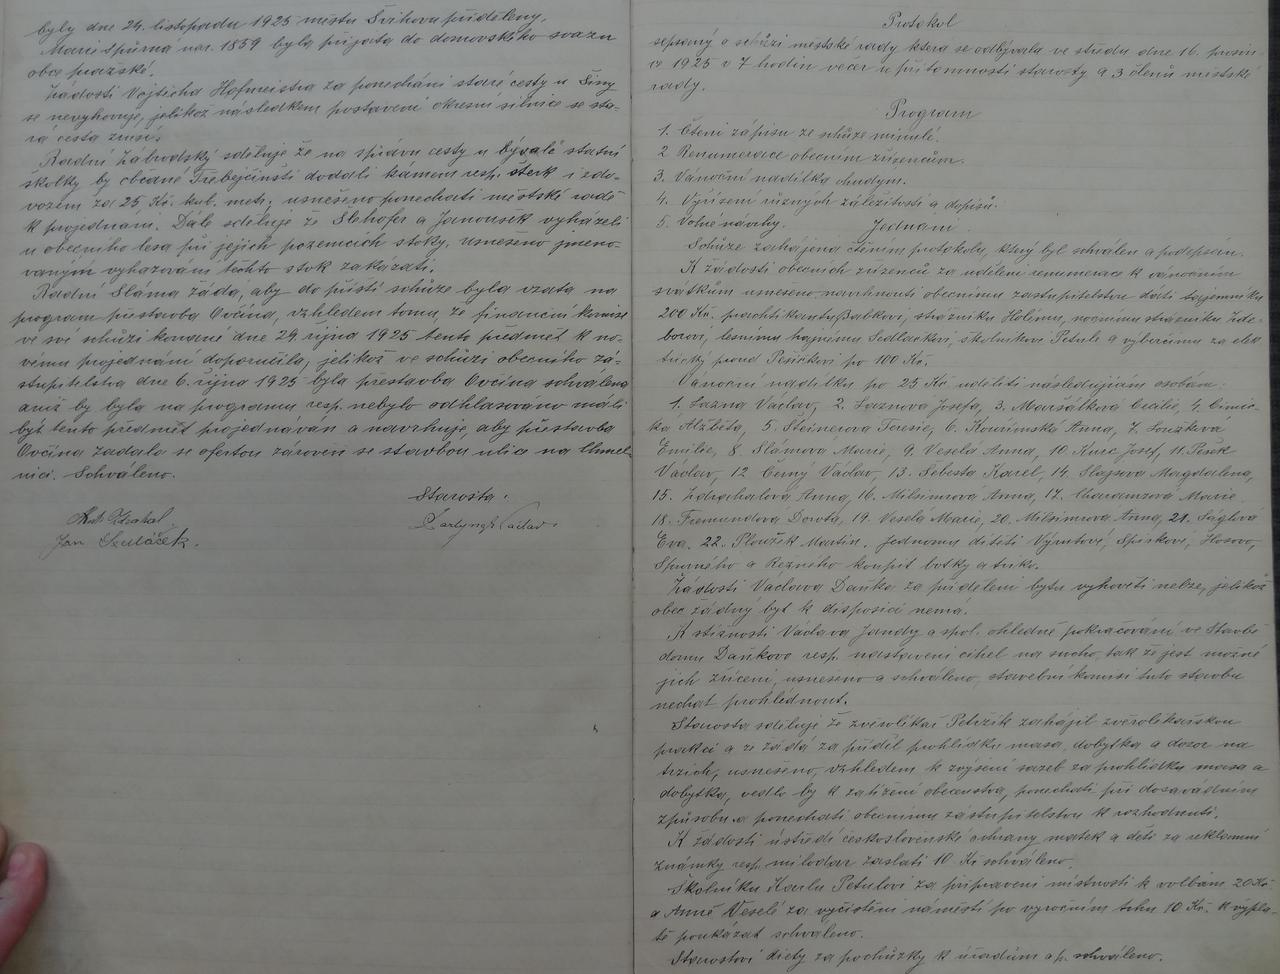 byly dne 24. listopadu 1925 městu Švihovu přiděleny.
Marie Spurná nar. 1859 byla přijata do domovského svazu
obce pražské.
Žádosti Vojtěcha Hofmeistra za ponechání staré cesty u
se nevyhovuje, jelikož následkem postavení okresní silnice se sta-
rá cesta zruší.
Radní Zábrodský sděluje že na spádov cesty u bývalé státní
školky by občané Třebýcinští dodali kámen resp. štěrk i zdo-
vozem za 25 Kč. kub. metr; usneseno ponechati městské radě
k projednání. Dále sděluje že a Janousek vyházeli
u obecního lesa při jejich pozemcích stoky, usneseno jmeno-
vaným vyhazování těchto stok zakázati.
Radní Sláma žádá, aby do příští schůze byla vzata na
program přestavba Ovčína, vzhledem tomu, že finanční komise
ve své schůzi konané dne 29. října 1925 tento předmět k no-
vému projednání doporučila, jelikož ve schůzi obecního za-
stupitelstva dne 6. října 1925 byla přestavba Ovčína schválena
aniž by byla na programu resp. nebylo odhlasováno máli
být tento předmět projednáván a navrhuje, aby přestavba
Ovčína zadala se ofertou zároveň se stavbou ulice na Chmel-
nici. Schváleno.
Starosta:
Ant. Zdrahal
Jan Sedláček.
Protokol
sepsaný o schůzi městské rady která se odbývala ve středu dne 16. prosin-
ce 1925 v 7 hodin večer u přítomnosti starosty a 3 členů městské
rady.
Program
1. Čtení zápisu ze schůze minulé.
2. Renumerace obecním zřízencům.
3. Vánoční nadílka chudým.
4. Vyřízení různých záležitostí a dopisů.
5. Volné návrhy.
Jednání.
Schůze zahájena čtením protokolu, který byl schválen a podepsán.
K žádosti obecních zřízenců za udělení renumerace k vánočním
svátkům usneseno navrhnouti obecnímu zastupitelstvu dáti tajemníku
200 Kč. praktikantu Balkovi, strážníku Holému, nočnímu strážníku Zde-
borovi, lesnímu hajnému Sedláčkovi, školníkovi Petule a výběrčímu za elek
trický proud Pešičkovi po 100 Kč.
Vánoční nadílku po 25 Kč uděliti následujícím osobám:
1. Sazma Václav, 2. Saznová Josefa, 3. Maršálková Cecilie, 4.
Alžběta, 5. Steinerova Terezie, 6. Kouřimská Anna, 7.
Emilie, 8. Slámová Marie, 9. Veselá Anna, 10. Kunc Josef, 11. Pešek
Václav, 12 Černý Václav, 13. Šebesta Karel, 14. Slajsova Magdalena,
15. Zdrahalová Anna, 16. Milsimrová Anna, 17. Charamzova Marie
18. Fremundová Dorota, 19. Veselá Marie, 20. Milsimrova Anna, 21. Ságlová
Eva. 22. Ploužek Martin. Jednomu dítěti Výrutové, Spirkové, Hosovo,
Spurného a Rezného koupit botky a triko.
Žádosti Václava Daňka za přidělení bytu vyhověti nelze, jelikož
obec žádný byt k disposici nemá.
K stížnosti Václava Jandy a spol. ohledně pokračování ve stavbě
domu Daňkovo resp. nastavení cihel na sucho, tak že jest možné
jich zřícení, usneseno a schváleno, stavební komisí tuto stavbu
nechat prohlédnout.
Starosta sděluje že zvěrolékař Petržík zahájil zvěrolékařskou
praxi a že žádá za příděl prohlídku masa, dobytka a dozor na
trzích, usneseno, vzhledem k zvýšení sazeb za prohlídku masa a
dobytka, vedlo by k zatížení obecenstva, ponechati při dosavadním
způsobu a ponechati obecnímu zastupitelstvu k rozhodnutí.
K žádosti ústředí československé ochrany matek a dětí za reklamní
známky resp. milodar zaslati 10 Kč schváleno.
Školníku Karlu Petulovi za připravení místností k volbám 20 Kč
a Anně Veselé za vyčistění náměstí po výročním trhu 10 Kč. k výpla-
tě poukázat schváleno.
Starostovi diety za pochůzky k úřadům a p. schváleno.